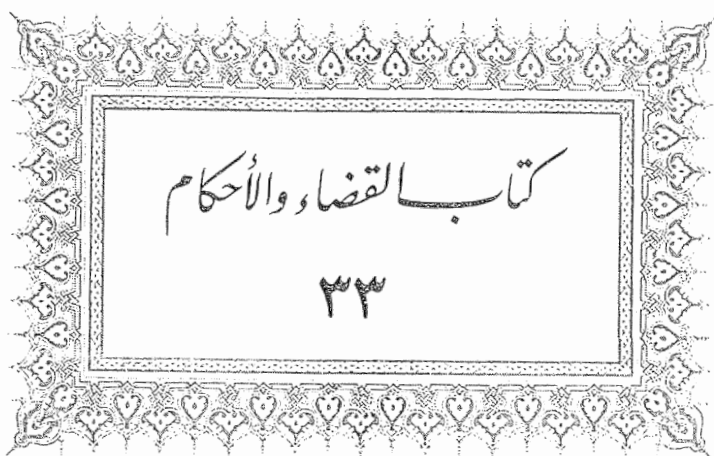 كتاب القضاء والأحكام
٣٣